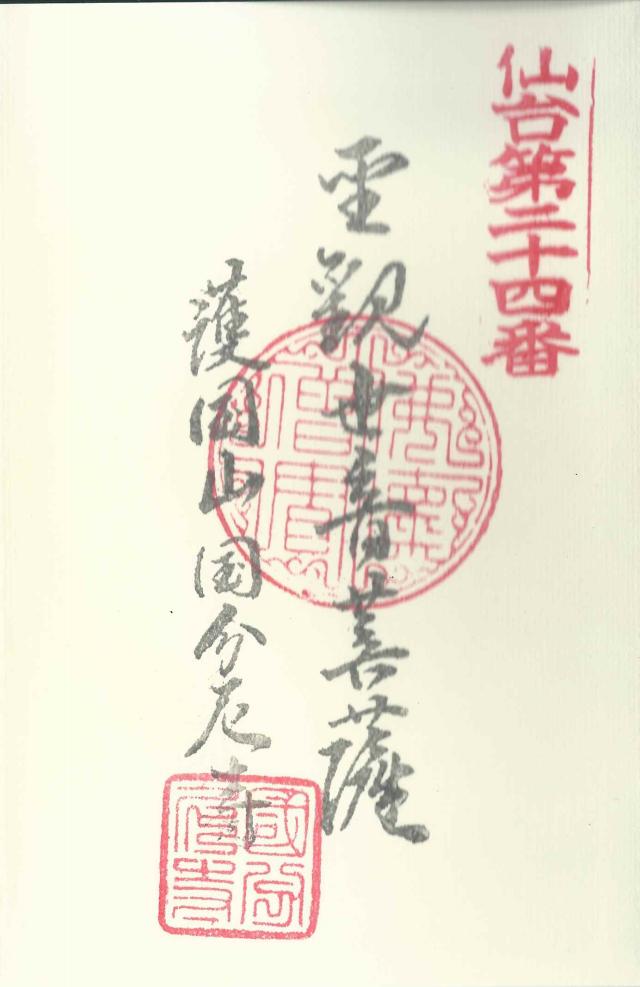 仙台第二十四番
聖観世音菩薩
護国山国分尼寺
佛法僧寶
國分尼寺